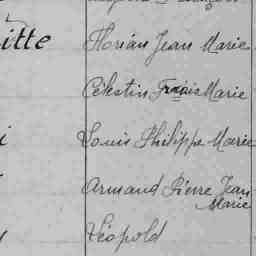 itte Florian Jean Marie
Célestin Frçois Marie
i Louis Philippe Marie
Armand Pierre Jean
Marie
Léopold